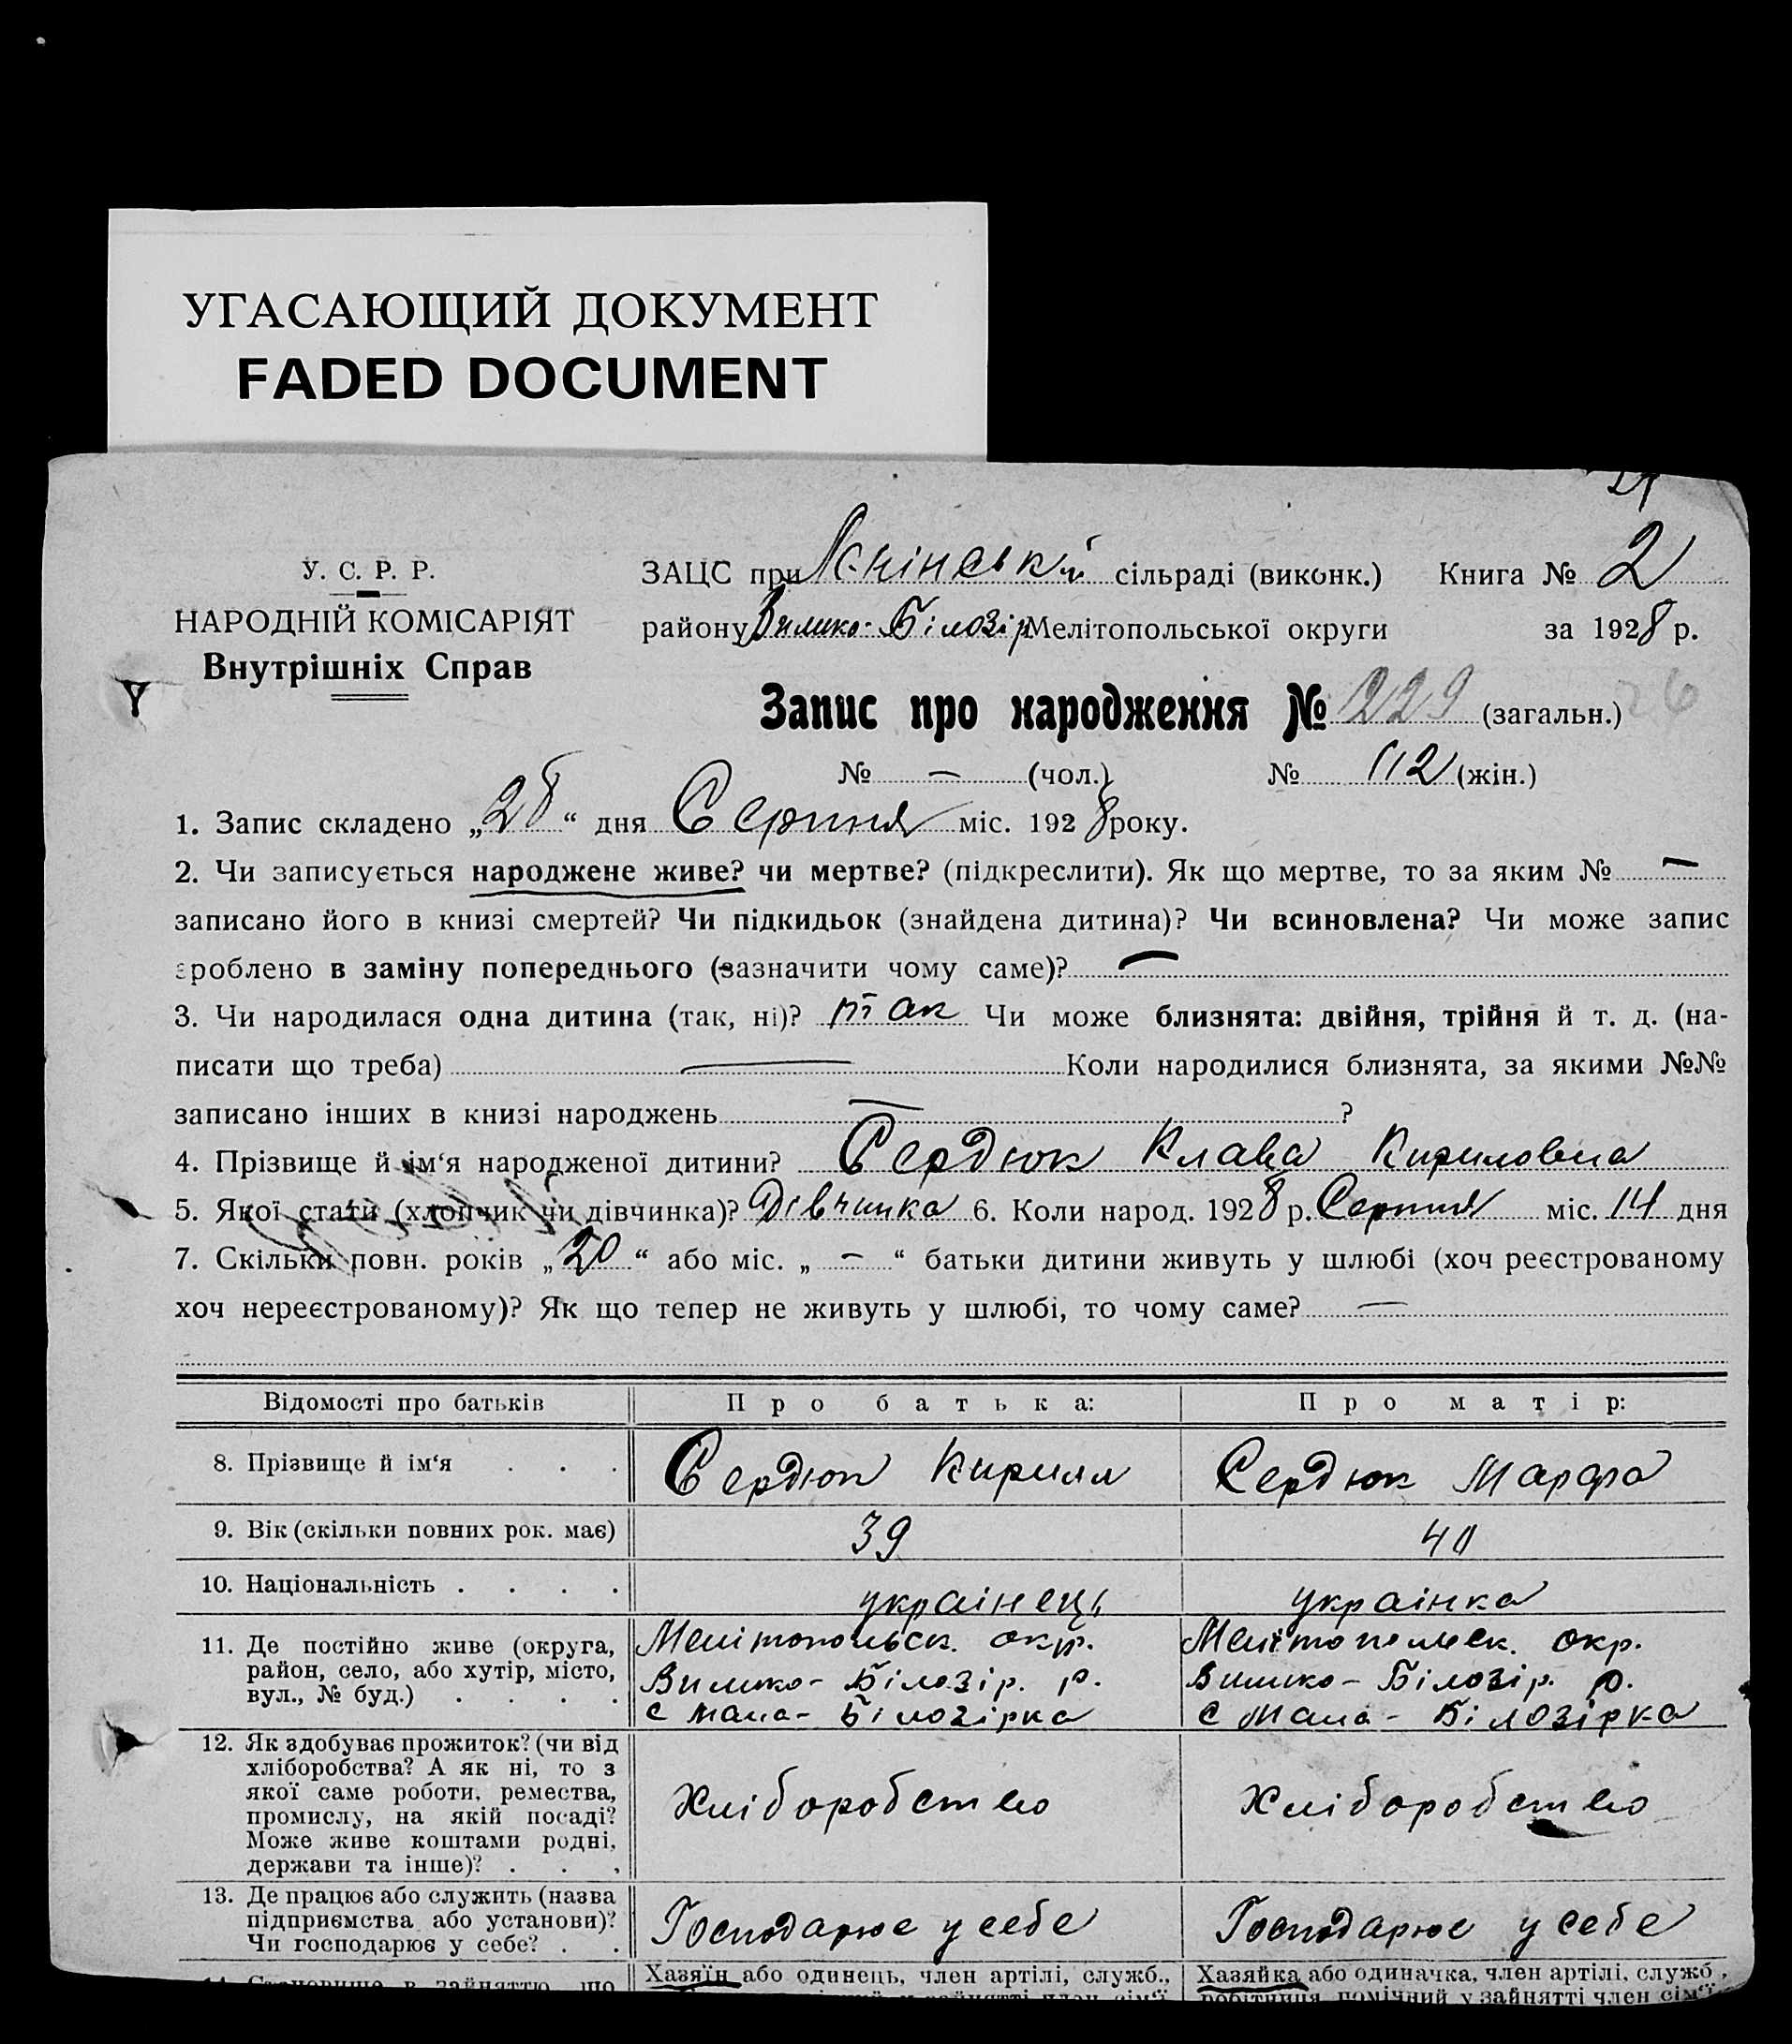 УГАСАЮЩИЙ ДОКУМЕНТ
FADED DOCUMENT
У. С. Р. Р.
НАРОДНІЙ КОМІСАРІЯТ
Внутрішніх Справ
ЗАЦС при Ленінській сільраді (виконк.) Книга № 2
району Велико-Білозір Мелітопольської округи за 1928 р.
Запис про народження № 229 (загальн.) 26
№ — (чол.) № 112 (жін.)
1. Запис складено „28“ дня Серпня міс. 1928 року.
2. Чи записується народжене живе? чи мертве? (підкреслити). Як що мертве, то за яким № —
записано його в книзі смертей? Чи підкидьок (знайдена дитина)? Чи всиновлена? Чи може запис
зроблено в заміну попереднього (зазначити чому саме)? —
3. Чи народилася одна дитина (так, ні)? так Чи може близнята: двійня, трійня й т. д. (на-
писати що треба) — Коли народилися близнята, за якими №№
записано інших в книзі народжень — ?
4. Прізвище й ім‘я народженої дитини? Сердюк Клава Кириловна
5. Якої стати (хлопчик чи дівчинка)? Дівчинка 6. Коли народ. 1928 р. Серпня міс. 14 дня
7. Скільки повн. років „20“ або міс. „—“ батьки дитини живуть у шлюбі (хоч реєстрованому
хоч нереєстрованому)? Як що тепер не живуть у шлюбі, то чому саме? —
Відомості про батьків Про батька: Про матір:
8. Прізвище й ім‘я . . . Сердюк Кирилл Сердюк Марфа
9. Вік (скільки повних рок. має) 39 40
10. Національність . . . . українець українка
11. Де постійно живе (округа,
район, село, або хутір, місто,
вул., № буд.) . . . .
Мелітопольск. окр.
Вилико-Білозір. р.
с Мала-Білозірка
Мелітопольск. окр.
Вилико-Білозір. р.
с Мала-Білозірка
12. Як здобуває прожиток? (чи від
хліборобства? А як ні, то з
якої саме роботи, ремества,
промислу, на якій посаді?
Може живе коштами родні,
держави та інше)? . . .
Хліборобство Хліборобство
13. Де працює або служить (назва
підприємства або установи)?
Чи господарює у себе? . .
Господарює у себе Господарює у себе
Хазяїн або одинець, член артілі, служб., Хазяйка або одиначка, член артілі, служб.,